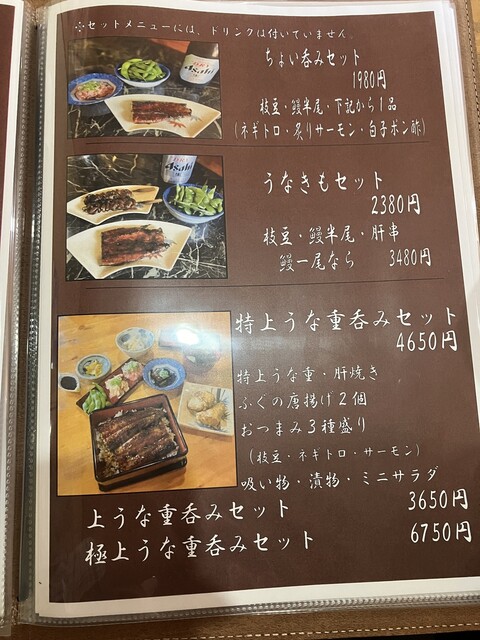 ※セットメニューには、ドリンクは付いていません。
ちょい呑みセット
1980円
枝豆・鰻半尾・下記から1品
(ネギトロ・炙りサーモン・白子ポン酢)
Asahi
うなきもセット
2380円
枝豆・鰻半尾・肝串
鰻一尾なら 3480円
Asahi
特上うな重呑みセット
4650円
特上うな重・肝焼き
ふぐの唐揚げ2個
おつまみ3種盛り
(枝豆・ネギトロ・サーモン)
吸い物・漬物・ミニサラダ
上うな重呑みセット 3650円
極上うな重呑みセット 6750円